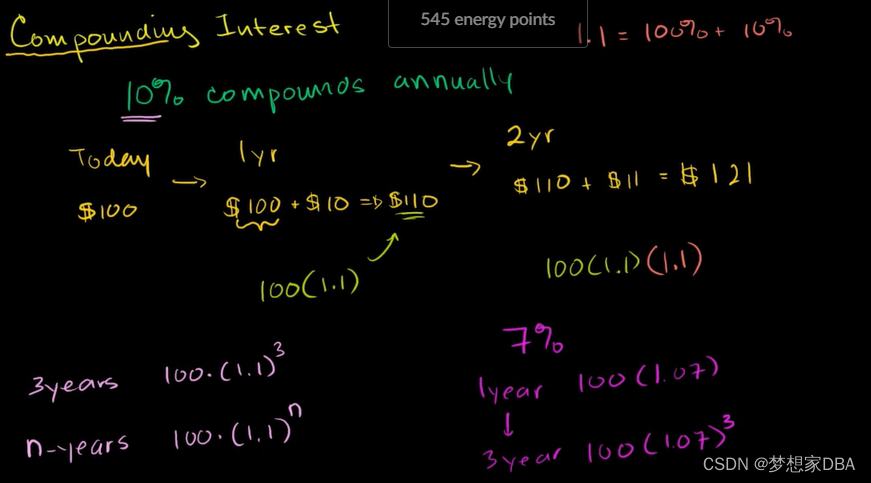 545 energy points
Compounding Interest
1.1 = 100% + 10%
10% compounds annually
Today → 1yr → 2yr
$100
$100 + $10 => $110
$110 + $11 = $121
100(1.1)
100(1.1)(1.1)
3years 100·(1.1)^3
n-years 100·(1.1)^n
7%
1year 100(1.07)
↓
3year 100(1.07)^3
CSDN @梦想家DBA